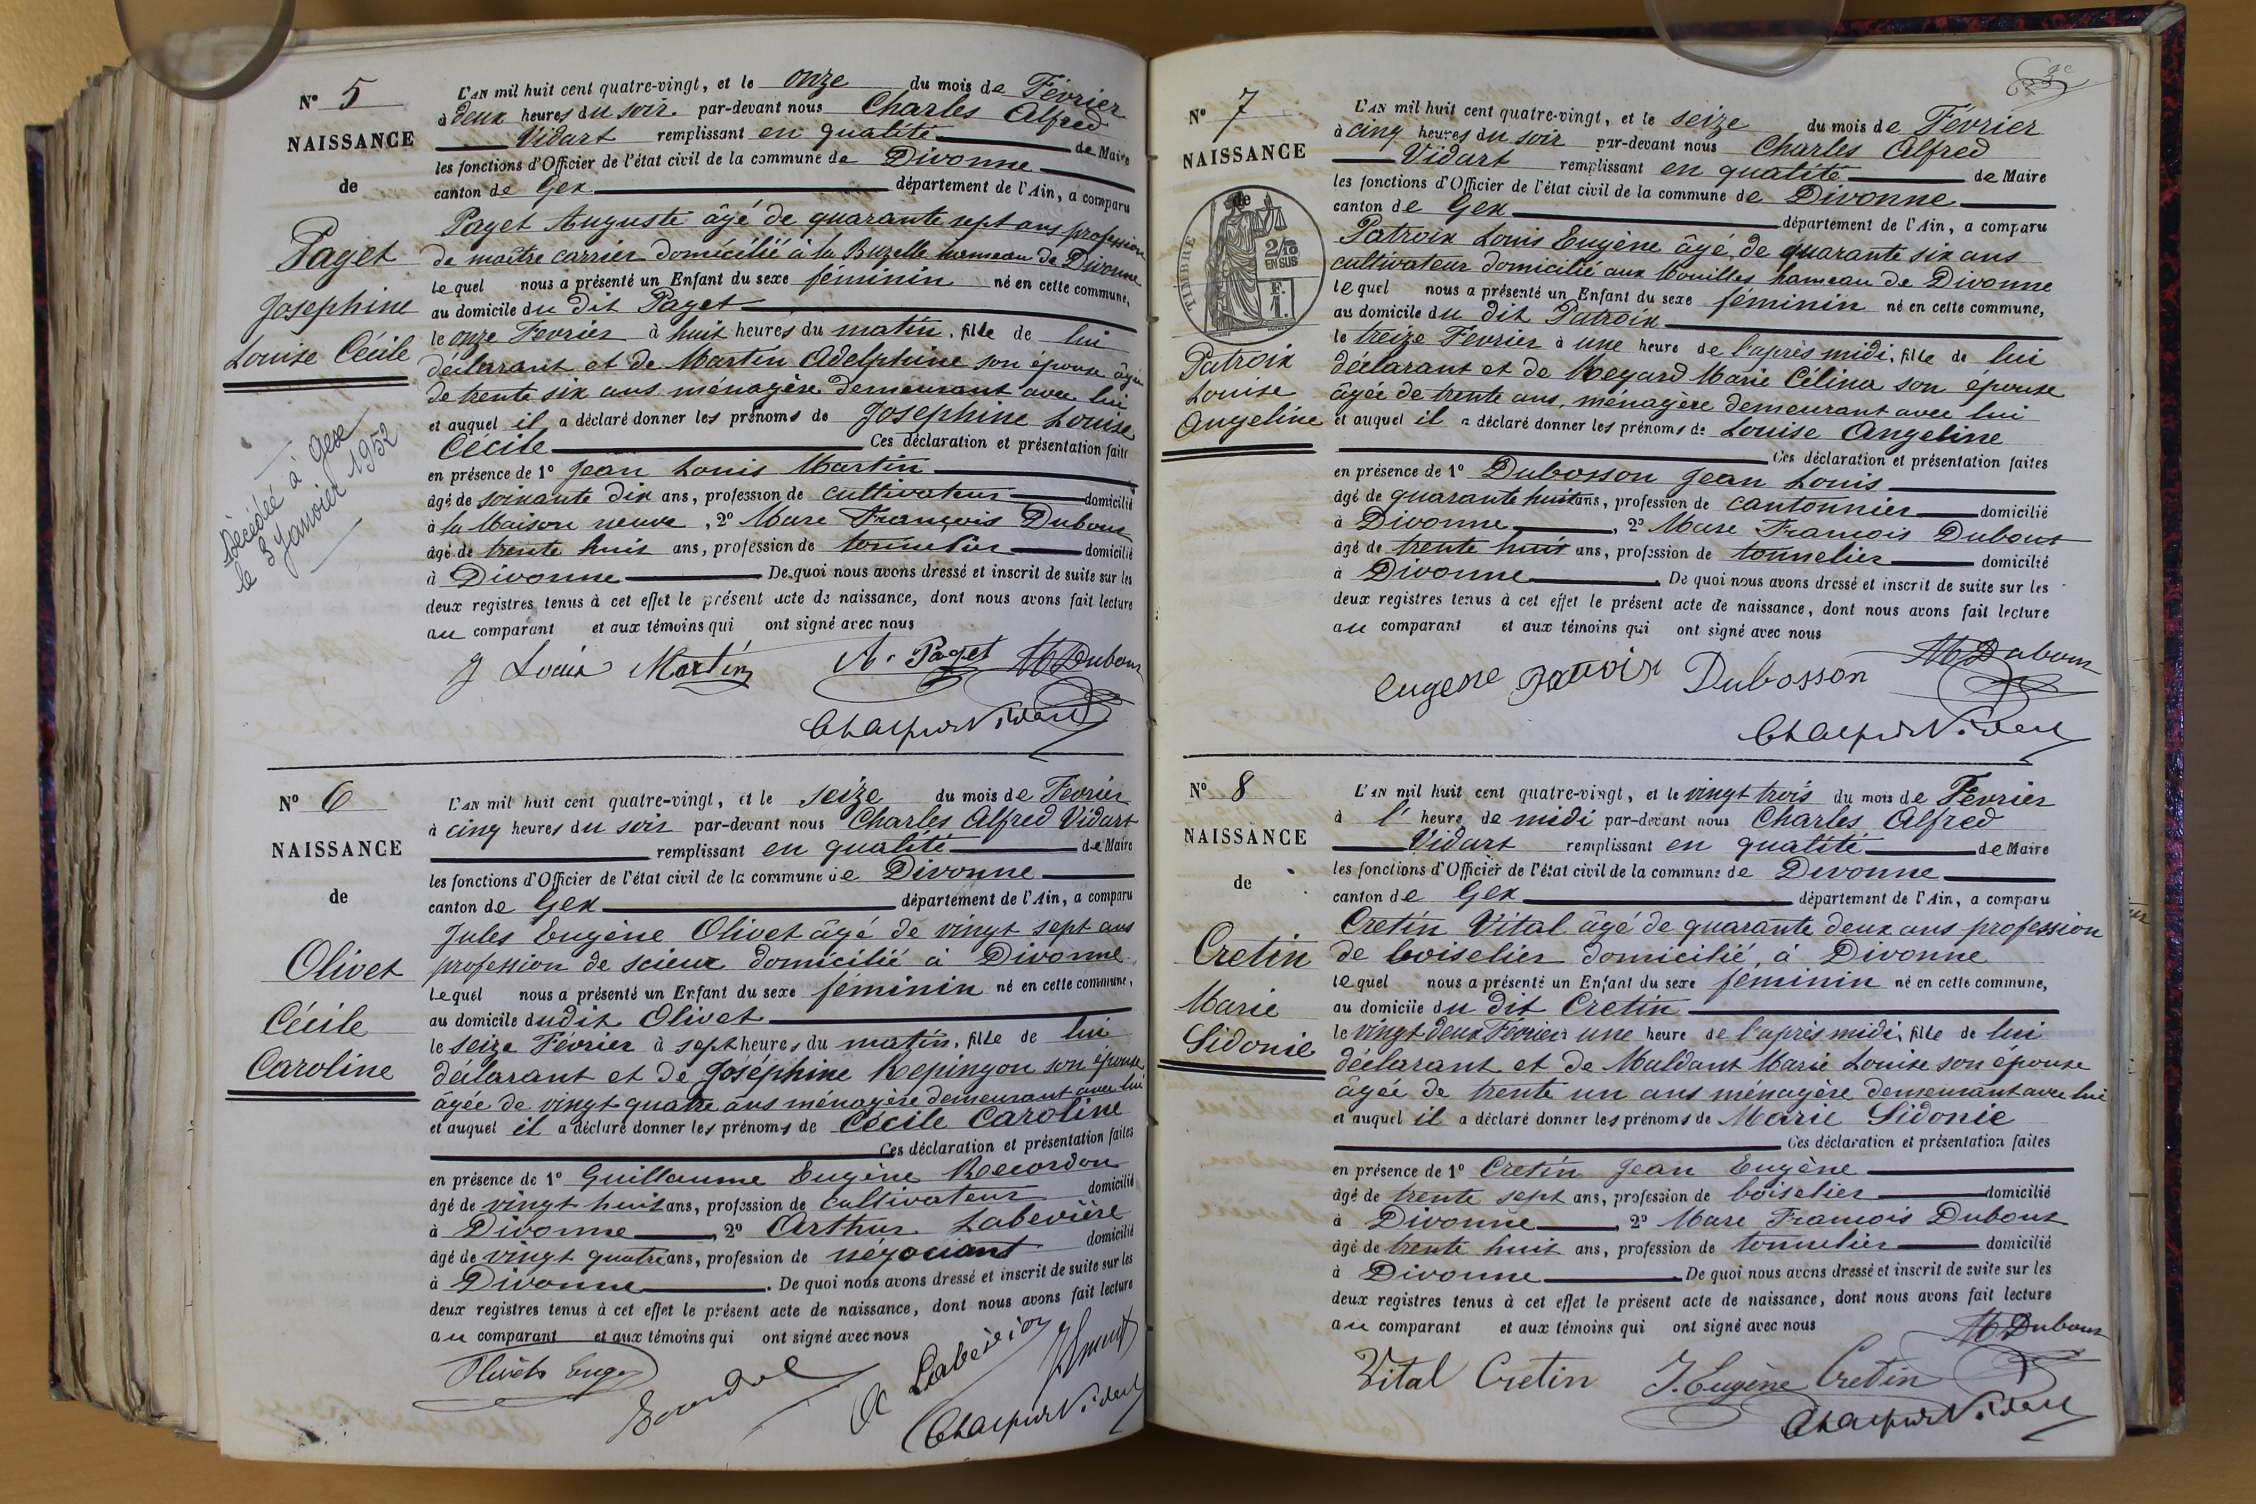 N° 5
NAISSANCE
de
Paget
Josephine
Louise Cécile
Décédée à Gex
le 3 Janvier 1952
L'AN mil huit cent quatre-vingt, et le onze du mois de Février
à deux heures du soir par-devant nous Charles Alfred
Vidart remplissant en qualité de Maire
les fonctions d'Officier de l'état civil de la commune de Divonne
canton de Gex département de l'Ain, a comparu
Paget Auguste âgé de quarante sept ans profession
de maître carrier domicilié à la Buzelle hameau de Divonne
lequel nous a présenté un Enfant du sexe féminin né en cette commune,
au domicile du dit Paget
le onze Fevrier à huit heures du matin, fille de lui
déclarant et de Martin Adelphine son épouse âgée
de trente six ans ménagère demeurant avec lui
et auquel il a déclaré donner les prénoms de Josephine Louise
Cécile Ces déclaration et présentation faites
en présence de 1° Jean Louis Martin
âgé de soixante dix ans, profession de cultivateur domicilié
à la Maison neuve, 2° Marc François Dubout
âgé de trente huit ans, profession de tonnelier domicilié
à Divonne De quoi nous avons dressé et inscrit de suite sur les
deux registres tenus à cet effet le présent acte de naissance, dont nous avons fait lecture
au comparant et aux témoins qui ont signé avec nous
J Louis Martin A. Paget Mf Dubout
Ch Alfred Vidart
N° 6
NAISSANCE
de
Olivet
Cécile
Caroline
L'AN mil huit cent quatre-vingt, et le seize du mois de Février
à cinq heures du soir par-devant nous Charles Alfred Vidart
remplissant en qualité de Maire
les fonctions d'Officier de l'état civil de la commune de Divonne
canton de Gex département de l'Ain, a comparu
Jules Eugène Olivet âgé de vingt sept ans
profession de scieur domicilié à Divonne
lequel nous a présenté un Enfant du sexe féminin né en cette commune,
au domicile dudit Olivet
le seize Février à sept heures du matin, fille de lui
déclarant et de Joséphine Repingon son épouse
âgée de vingt quatre ans ménagère demeurant avec lui
et auquel il a déclaré donner les prénoms de Cécile Caroline
Ces déclaration et présentation faites
en présence de 1° Guillaume Eugène Recordon
âgé de vingt huit ans, profession de cultivateur domicilié
à Divonne, 2° Arthur Labevière
âgé de vingt quatre ans, profession de négociant domicilié
à Divonne. De quoi nous avons dressé et inscrit de suite sur les
deux registres tenus à cet effet le présent acte de naissance, dont nous avons fait lecture
au comparant et aux témoins qui ont signé avec nous
Olivet Eug
Ch Alfred Vidart
3e
N° 7
NAISSANCE
de
TIMBRE
2/10
EN SUS
F.
1.
Patroix
Louise
Angeline
L'AN mil huit cent quatre-vingt, et le seize du mois de Février
à cinq heures du soir par-devant nous Charles Alfred
Vidart remplissant en qualité de Maire
les fonctions d'Officier de l'état civil de la commune de Divonne
canton de Gex département de l'Ain, a comparu
Patroix Louis Eugène âgé de quarante six ans
cultivateur domicilié aux Mouilles hameau de Divonne
lequel nous a présenté un Enfant du sexe féminin né en cette commune,
au domicile du dit Patroix
le treize Février à une heure de l'après midi, fille de lui
déclarant et de Regard Marie Célina son épouse
âgée de trente ans, ménagère demeurant avec lui
et auquel il a déclaré donner les prénoms de Louise Angeline
Ces déclaration et présentation faites
en présence de 1° Dubosson Jean Louis
âgé de quarante huit ans, profession de cantonnier domicilié
à Divonne, 2° Marc François Dubout
âgé de trente huit ans, profession de tonnelier domicilié
à Divonne. De quoi nous avons dressé et inscrit de suite sur les
deux registres tenus à cet effet le présent acte de naissance, dont nous avons fait lecture
au comparant et aux témoins qui ont signé avec nous
eugene patroix Dubosson Mf Dubout
Ch Alfred Vidart
N° 8
NAISSANCE
de
Cretin
Marie
Sidonie
L'AN mil huit cent quatre-vingt, et le vingt trois du mois de Février
à l' heure de midi par-devant nous Charles Alfred
Vidart remplissant en qualité de Maire
les fonctions d'Officier de l'état civil de la commune de Divonne
canton de Gex département de l'Ain, a comparu
Cretin Vital âgé de quarante deux ans profession
de boiselier domicilié, à Divonne
lequel nous a présenté un Enfant du sexe féminin né en cette commune,
au domicile du dit Cretin
le vingt deux Février à une heure de l'après midi, fille de lui
déclarant et de Maldant Marie Louise son épouse
âgée de trente un ans ménagère demeurant avec lui
et auquel il a déclaré donner les prénoms de Marie Sidonie
Ces déclaration et présentation faites
en présence de 1° Cretin Jean Eugène
âgé de trente sept ans, profession de boiselier domicilié
à Divonne, 2° Marc François Dubout
âgé de trente huit ans, profession de tonnelier domicilié
à Divonne. De quoi nous avons dressé et inscrit de suite sur les
deux registres tenus à cet effet le présent acte de naissance, dont nous avons fait lecture
au comparant et aux témoins qui ont signé avec nous
Mf Dubout
Vital Cretin J. Eugène Cretin
Ch Alfred Vidart